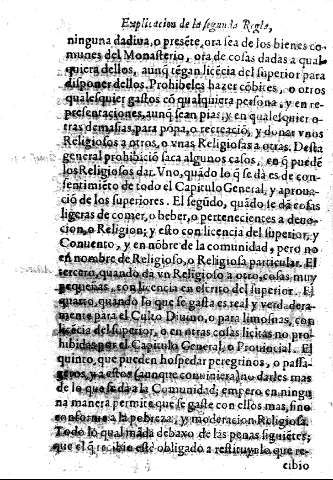 Explicacion de la segunda Regla,
ninguna dadiua, o presẽte, ora sea de los bienes co-
munes del Monasterio, ora de cosas dadas a qual-
quiera dellos, aunq̃ tẽgan licẽcia del superior para
disponer dellos. Prohibeles hazer cõbites, o otros
qualesquier gastos cõ qualquiera persona, y en re-
presentaciones, aunq̃ sean pias, y en qualesquier o-
tras demasias, para põpa, o recreaciõ, y donar vnos
Religiosos a otros, o vnas Religiosas a otras. Desta
general prohibiciõ saca algunos casos, en q̃ puedẽ
los Religiosos dar. Vno, quãdo lo q̃ se dà es de con-
sentimiẽto de todo el Capitulo General, y aproua-
ciõ de los superiores. El segũdo, quãdo se dà cosas
ligeras de comer, o beber, o pertenecientes a deuo-
cion, o Religion; y esto con licencia del superior, y
Conuento, y en nõbre de la comunidad, pero no
en nombre de Religioso, o Religiosa particular. El
tercero, quando da vn Religioso a otro, cosas muy
pequeñas, con licencia en escrito del superior. El
quarto, quando lo que se gasta es real y verdadera-
mente para el Culto Diuino, o para limosnas, con
licẽcia del superior, o en otras cosas licitas no pro-
hibidas por el Capitulo General, o Prouincial. El
quinto, que pueden hospedar peregrinos, o passa-
geros, y a estos (aunque conuiniera) no darles mas
de lo que se dà a la Comunidad; empero en ningu
na manera permite que se gaste con ellos mas, sino
conforme a la pobreza, y moderacion Religiosa.
Todo lo qual mãda debaxo de las penas siguiẽtes;
que el q̃ recibio estè obligado a restituyrlo que re-
cibio